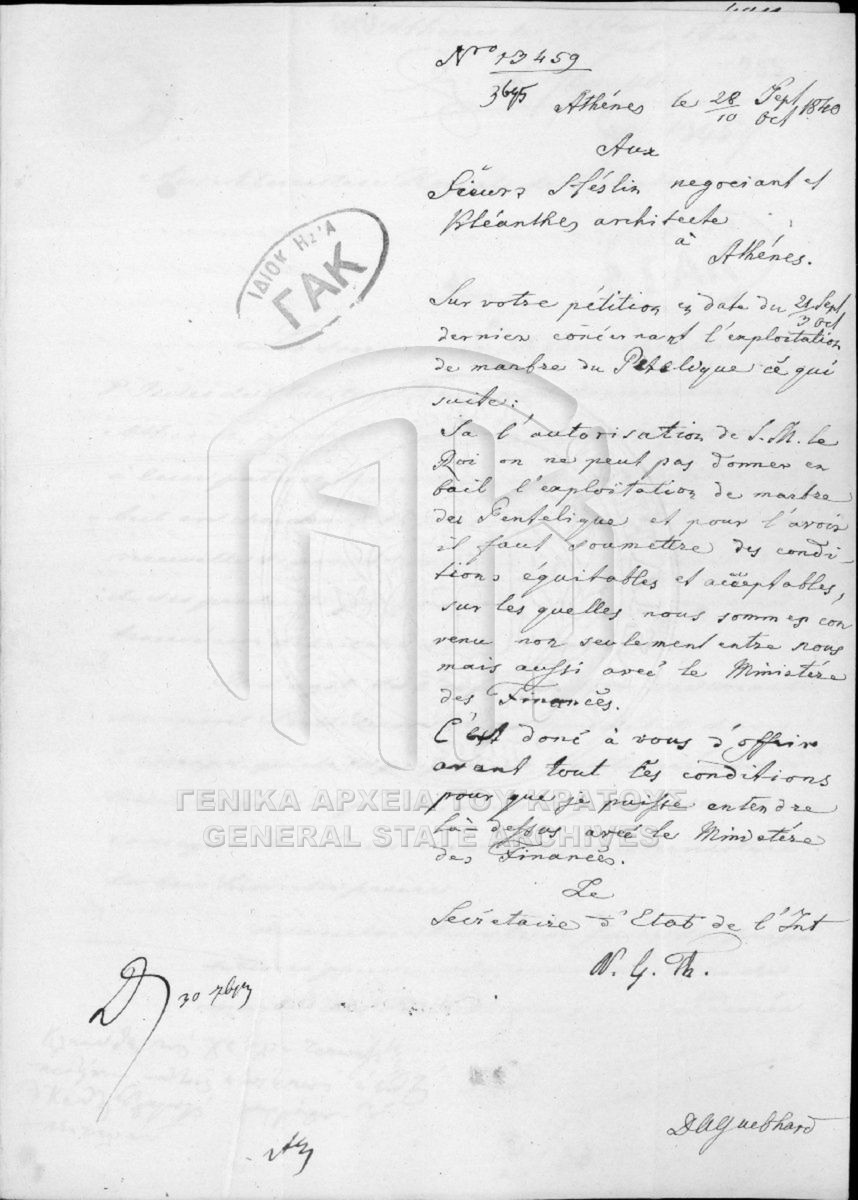 Nro 13459
Athénes le 28/10 Sept/Oct 1840
Aux
Sieurs negociant et
Kléanthes architecte
à
Athénes.
ΙΔΙΟΚ
ΓΑΚ
Sur votre pétition en date du 21 Sept/3 Oct
dernier concernant l'exploitation
de marbre du Pentelique cé qui
suite:
Sa l'autorisation de S. M. le
Roi on ne peut pas donner en
bail l'exploitation de marbre
des Pentélique et pour l'avoir
il faut soumettre des condi-
tions équitables et acceptables,
sur les quelles nous sommes con
venu non seulement entre nous
mais aussi avec le Ministére
des Financés.
C'est donc à vous d'offrir
avant tout les conditions
pour que je puisse entendre
là-dessus avec le Ministére
des Financés.
ΓΕΝΙΚΑ ΑΡΧΕΙΑ ΤΟΥ ΚΡΑΤΟΥΣ
GENERAL STATE ARCHIVES
Le
Secrétaire d'Etat de l'Int
N. G. Th.
30